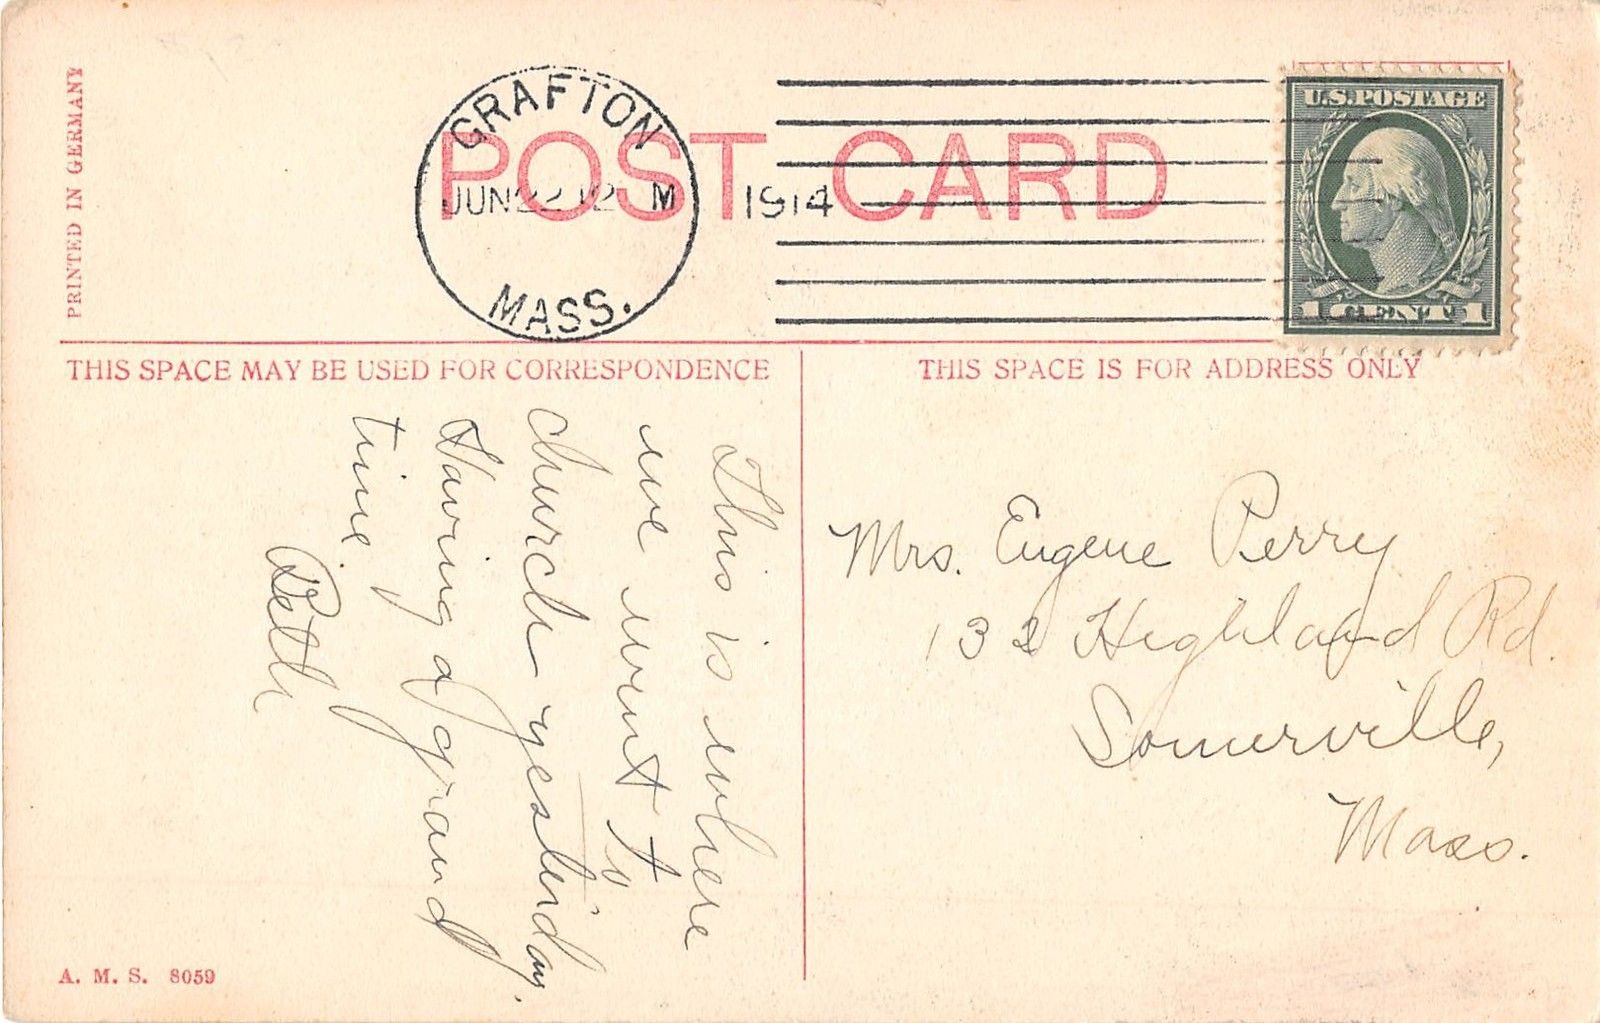 PRINTED IN GERMANY
GRAFTON
JUN 22 12 M 1914
MASS.
POST CARD
U.S. POSTAGE
1 CENT 1
THIS SPACE MAY BE USED FOR CORRESPONDENCE
THIS SPACE IS FOR ADDRESS ONLY
This is where
we went to
church yesterday.
Having a grand
time
Beth
Mrs. Eugene Perry
132 Highland Rd.
Somerville,
Mass.
A. M. S. 8059